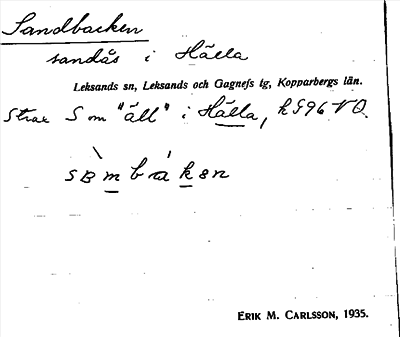 Sandbacken
sandås i Hälla
Leksands sn, Leksands och Gagnefs tg, Kopparbergs län.
Strax S om "äll" i Hälla, k 596 VO.
ERIK M. CARLSSON, 1935.